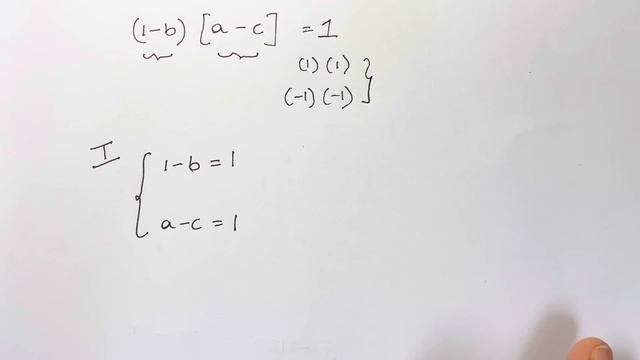 (1-b) [a-c] = 1
(1) (1)
(-1) (-1)
I
1-b = 1
a-c = 1